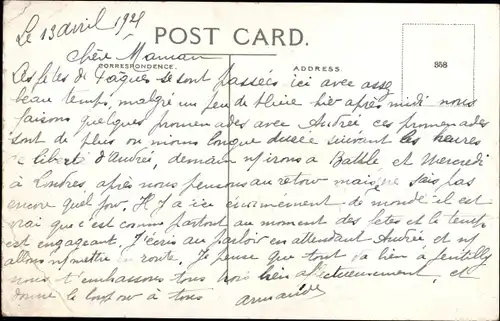 Le 13 avril 192
POST CARD.
CORRESPONDENCE.
ADDRESS.
868
Chère Maman
Les fêtes de Pâques se sont passées ici avec assez
beau temps, malgré un peu de pluie hier après midi nous
faisons quelques promenades avec Andrée ces promenades
sont de plus ou moins longue durée suivant les heures
de liberté d'Andrée, demain n/ irons à Battle et Mercredi
à Londres, après nous pensons au retour mais ne sais pas
encore quel jour. Il y a ici énormément de monde il est
vrai que c'est comme partout au moment des fêtes et le temps
est engageant. J'écris au parloir en attendant Andrée et n/
allons n/ mettre en route. Je pense que tout va bien à
nous t'embrassons tous trois bien affectueusement, et
donne le bonjour à tous
Armande